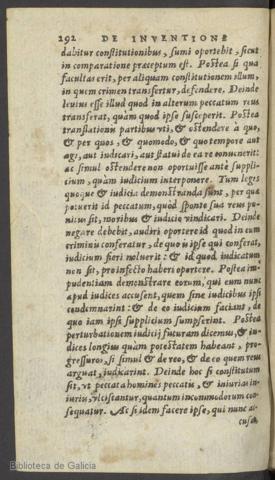 292 DE INVENTIONE
dabitur constitutionibus, sumi oportebit, sicut
in comparatione præceptum est. Postea si qua
facultas erit, per aliquam constitutionem illum,
in quem crimen transfertur, defendere. Deinde
leuius esse illud quod in alterum peccatum reus
transferat, quàm quod ipse susceperit. Postea
translationis partibus vti, & ostendere à quo,
& per quos, & quomodo, & quo tempore aut
agi, aut iudicari, aut statui de ea re conuenerit:
ac simul ostendere non oportuisse antè suppli-
cium, quàm iudicium interponere. Tum leges
quoque & iudicia demonstranda sunt, per quæ
potuerit id peccatum, quod sponte sua reus pu-
nitus sit, moribus & iudicio vindicari. Deinde
negare debebit, audiri oportere id quod in eum
criminis conferatur, de quo is ipse qui conferat,
iudicium fieri noluerit: & id quod iudicatum
non sit, pro infecto haberi oportere. Postea im-
pudentiam demonstrare eorum, qui eum nunc
apud iudices accusent, quem sine iudicibus ipsi
condemnarint: & de eo iudicium faciant, de
quo iam ipsi supplicium sumpserint. Postea
perturbationem iudicij futuram dicemus, & iu-
dices longius quàm potestatem habeant, pro-
gressuros, si simul & de reo, & de eo quem reus
arguat, iudicarint. Deinde hoc si constitutum
sit, vt peccata homines peccatis, & iniurias in-
iurijs vlciscantur, quantum incommodorum con-
sequatur. Ac si idem facere ipse, qui nunc ac-
cusat
Biblioteca de Galicia